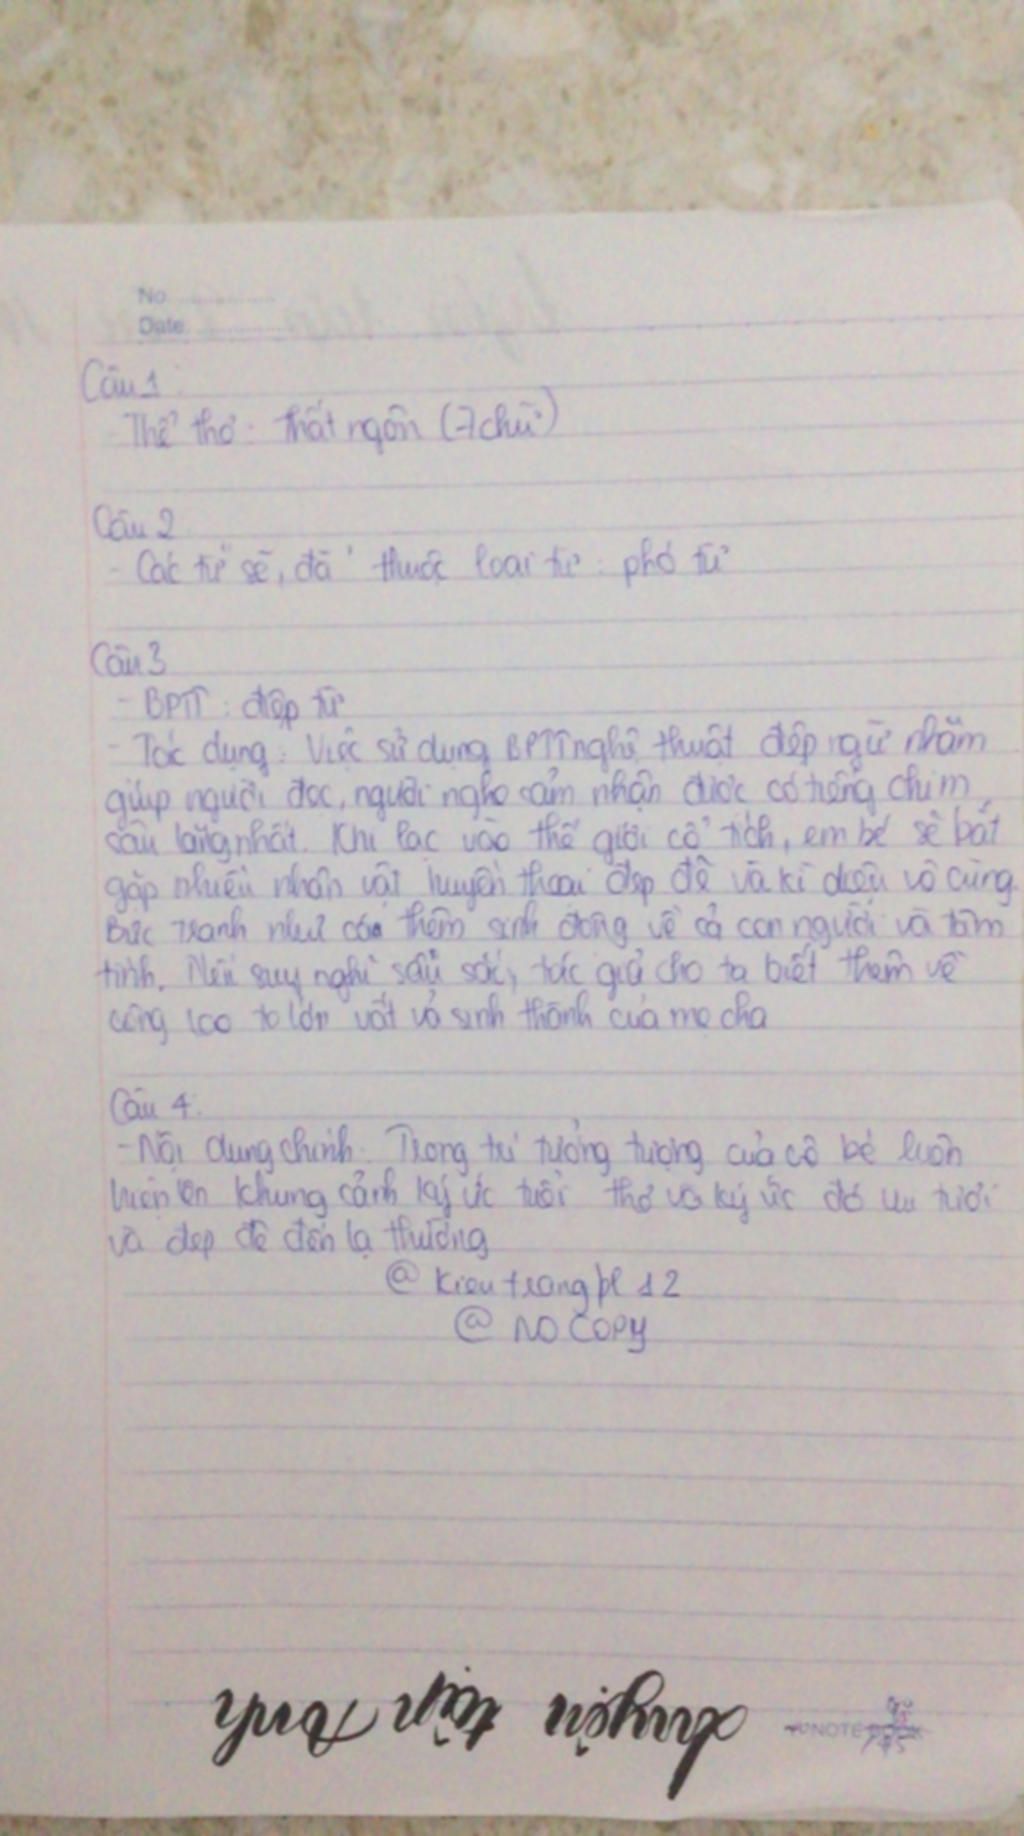 No
Date
Câu 1
- Thể thơ: thất ngôn (7 chữ)
Câu 2
- Các từ sẽ, đã thuộc loại từ: phó từ
Câu 3
- BPTT: điệp từ
- Tác dụng: Việc sử dụng BPTT nghệ thuật điệp ngữ nhằm
giúp người đọc, người nghe cảm nhận được có tiếng chim
sâu lắng nhất. Khi lạc vào thế giới cổ tích, em bé sẽ bắt
gặp nhiều nhân vật huyền thoại đẹp đẽ và kì diệu vô cùng.
Bức tranh như thêm sinh động về cả con người và tâm
tình. Nếu suy nghĩ sâu sắc, tác giả cho ta biết thêm về
công lao to lớn vất vả sinh thành của mẹ cha
Câu 4.
- Nội dung chính: Trong trí tưởng tượng của cô bé luôn
hiện lên khung cảnh ký ức tuổi thơ và ký ức đó tươi
và đẹp đẽ đến lạ thường
@ kieutrangpl 12
@ NO COPY
NOTE BOOK